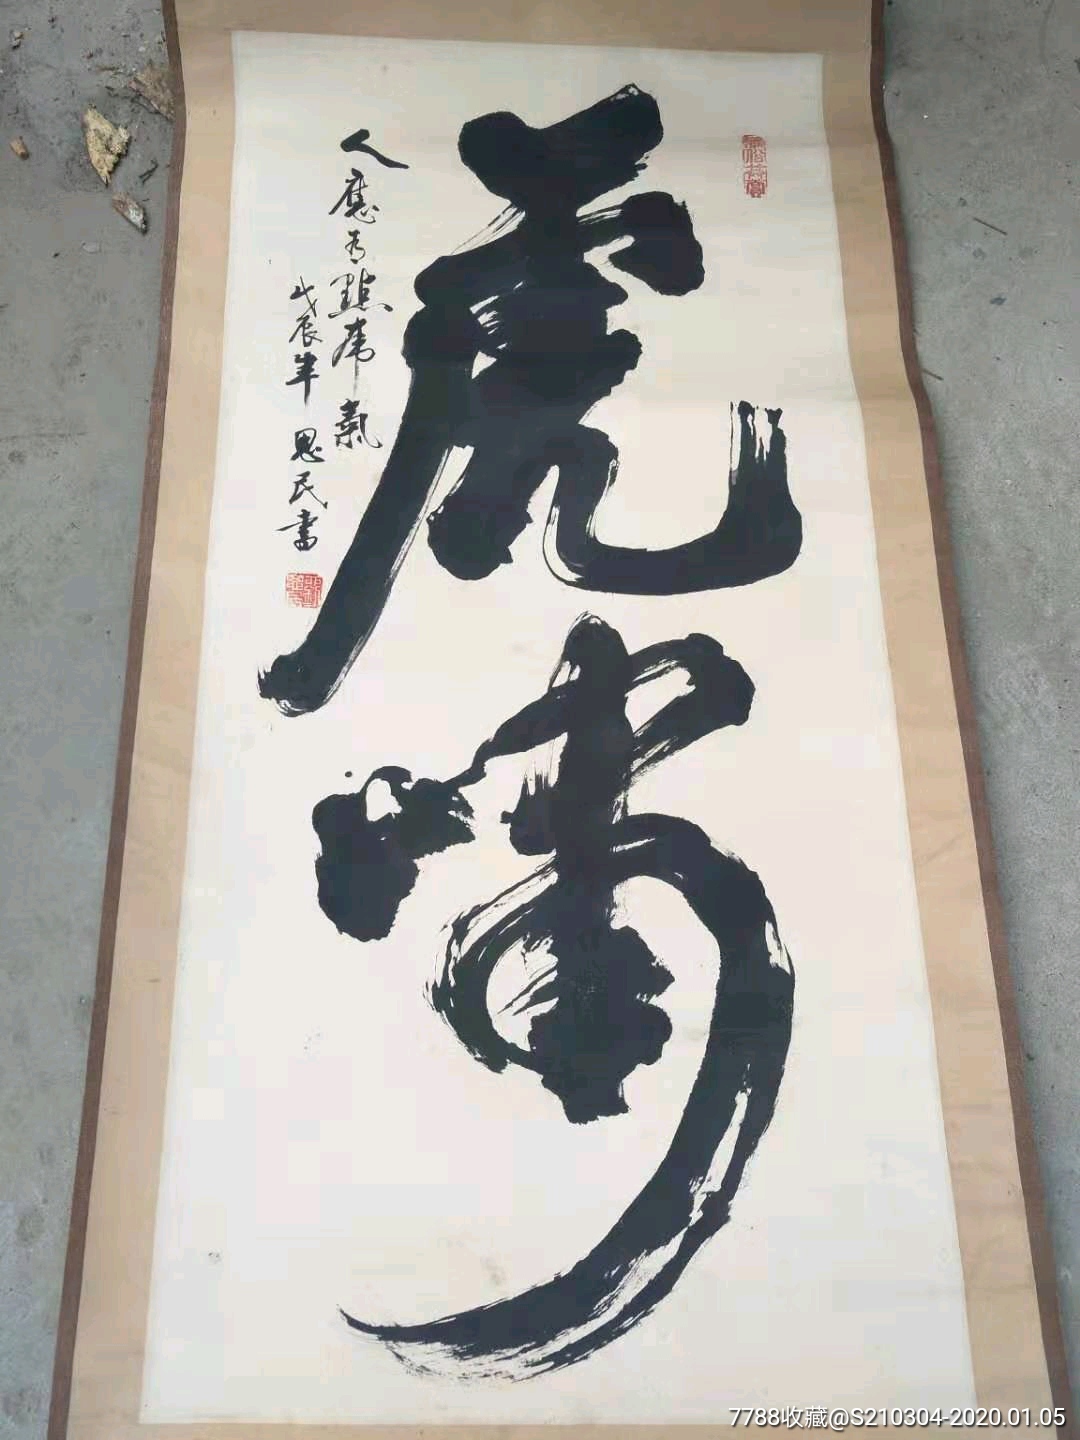 虎嘯
人應有點虎氣
戊辰年 思民書
7788收藏@S210304-2020.01.05